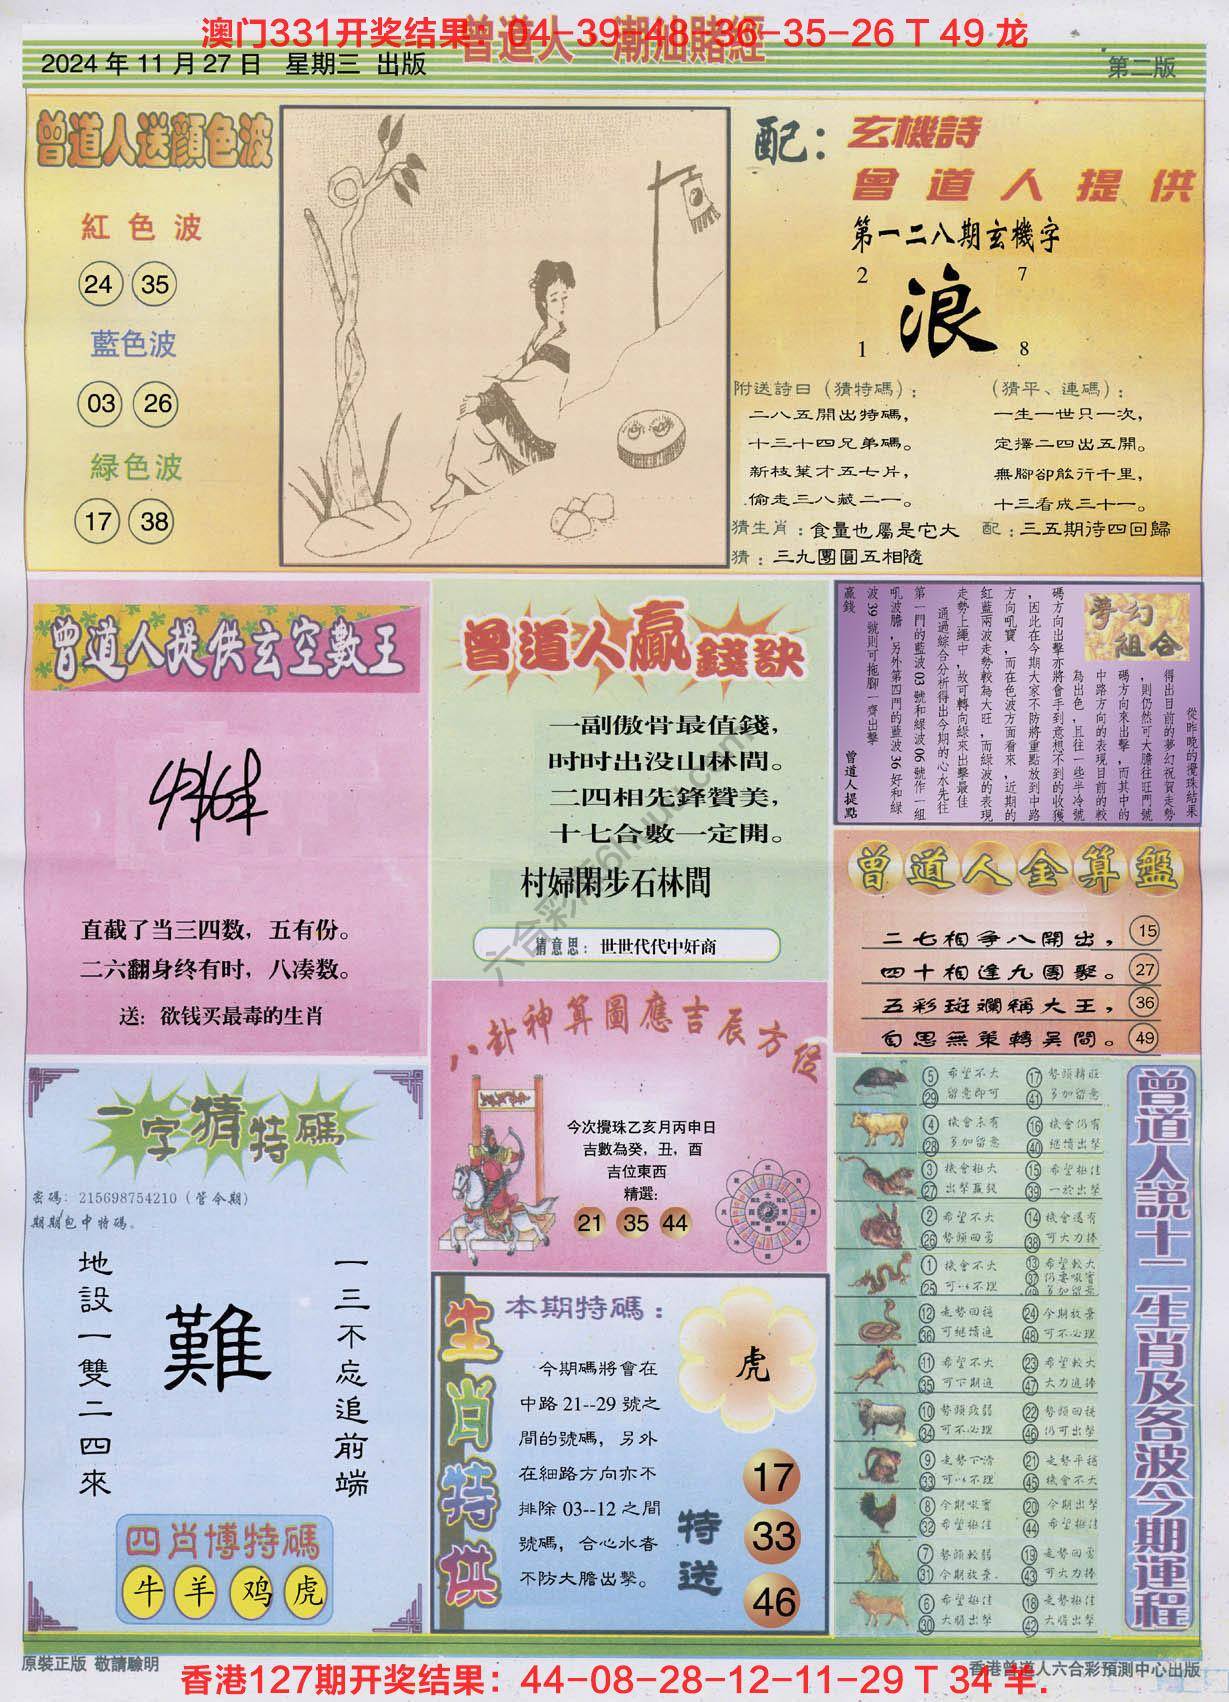 澳门331开奖结果：04-39-48-36-35-26 T 49 龙
曾道人 潮汕賭經
2024 年 11 月 27 日 星期三 出版
第二版
曾道人送顏色波
紅色波
24 35
藍色波
03 26
緑色波
17 38
配：玄機詩
曾道人提供
第一二八期玄機字
2 7
浪
1 8
附送詩曰（猜特碼）：
二八五開出特碼，
十三十四兄弟碼。
新枝葉才五七片，
偷走三八藏二一。
（猜平、連碼）：
一生一世只一次，
定擇二四出五開。
無腳卻能行千里，
十三看成三十一。
猜生肖：食量也屬是它大
配：三五期待四回歸
猜：三九團圓五相隨
曾道人提供玄空數王
直截了当三四数，五有份。
二六翻身终有时，八凑数。
送：欲钱买最毒的生肖
曾道人贏錢訣
一副傲骨最值錢，
时时出没山林間。
二四相先鋒贊美，
十七合數一定開。
村婦閑步石林間
猜意思：世世代代中奸商
夢幻組合
從昨晚的攪珠結果
得出目前的夢幻祝賀走勢
，則仍然可大膽往旺門號
碼方向來出擊，而其中的
中路方向的表現目前的較
為出色，且往一些半冷號
碼方向出擊亦將會手到意想不到的收獲
，因此在今期大家不防將重點放到中路
方向吼寶，而在色波方面看來，近期的
紅藍兩波走勢較為大旺，而綠波的表現
走勢上繩中，故可轉向綠來出擊最佳
通過綜合分析得出今期的心水先往
第一門的藍波 03 號和綠波 06 號作一組
吼波膽，另外第四門的藍波 36 好和綠
波 39 號則可拖腳一齊出擊
贏錢
曾道人提點
曾道人金算盤
二七相爭八開出， 15
四十相逢九團聚。 27
五彩斑斕稱大王， 36
自思無策轉吳間。 49
八卦神算圖應吉辰方位
今次攪珠乙亥月丙申日
吉數為癸，丑，酉
吉位東西
精選：
21 35 44
一字猜特碼
密碼：215698754210（管今期）
期期包中特碼。
一三不忘追前端
難
地設一雙二四來
四肖博特碼
牛 羊 鸡 虎
生肖特供
本期特碼：
虎
今期碼將會在
中路 21--29 號之
間的號碼，另外
在細路方向亦不
排除 03--12 之間
號碼，合心水者
不防大膽出擊。
特送
17
33
46
曾道人説十二生肖及各波今期運程
5 希望不大 17 勢頭轉旺
29 留意即可 41 多加留意
4 機會未有 16 機會仍有
28 多加留意 40 繼續出擊
3 機會極大 15 希望極佳
27 出擊贏錢 39 一於出擊
2 希望不大 14 機會還有
26 勢頭回勇 38 可大力捧
1 機會不大 13 希望較大
25 可以不理 37 仍要吼實
多加留意
12 走勢回穩 24 今期放棄
36 可繼續追 48 可不必理
11 希望不大 23 希望較大
35 可下期追 47 大力追捧
10 勢頭致弱 22 勢頭回穩
34 可不必理 46 仍可出擊
9 走勢下滑 21 走勢平穩
33 可以不理 45 機會不大
8 今期吼實 20 今期出擊
32 希望極佳 44 希望極佳
7 勢頭較弱 19 走勢回勇
31 今期放棄. 43 可大力捧
6 希望極佳 18 走勢極佳
30 大膽出擊 42 大膽出擊
原裝正版 敬請驗明
香港曾道人六合彩預測中心出版
香港127期开奖结果：44-08-28-12-11-29 T 34 羊.